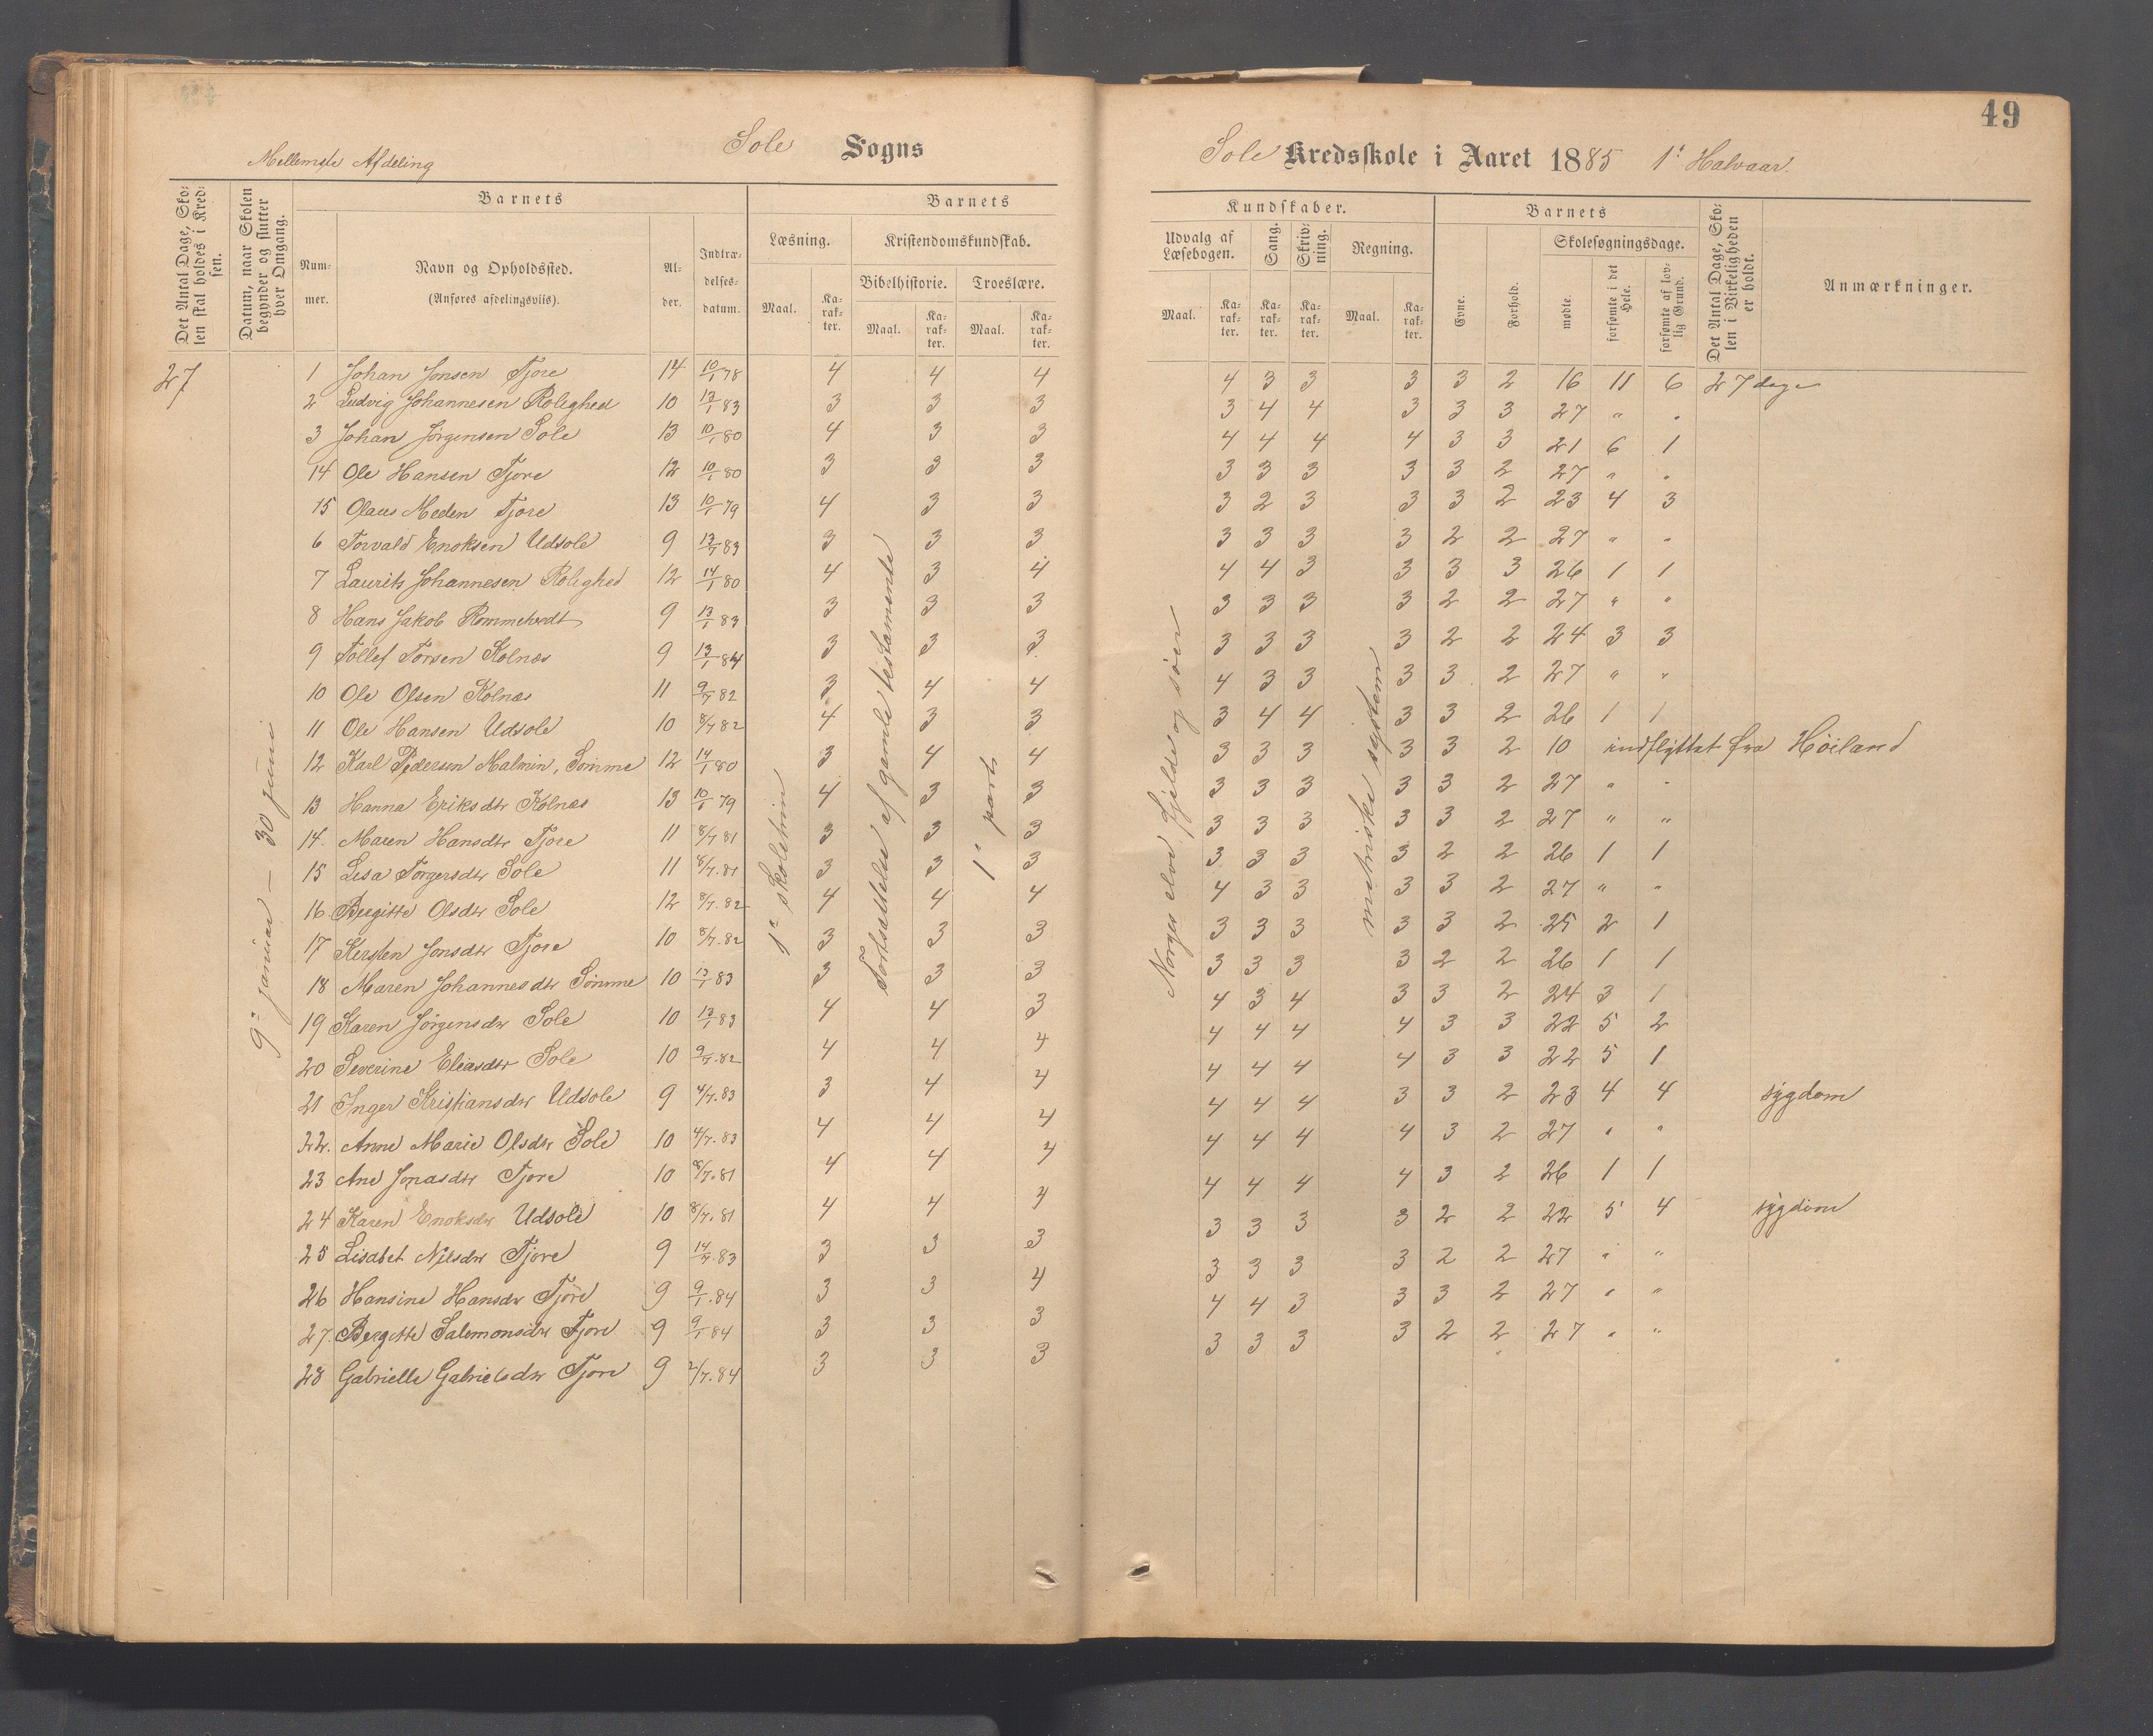 49
Mellemste Afdeling
Sole Sogns
Sole Kredsskole i Aaret 1885 1ste Halvaar.
Det Antal Dage, Skolen skal holdes i Kredsen.
Datum, naar Skolen begynder og slutter hver Omgang.
Barnets
Nummer.
Navn og Opholdssted. (Anføres afdelingsviis).
Alder.
Indtrædelsesdatum.
Barnets
Læsning.
Maal.
Karakter.
Kristendomskundskab.
Bibelhistorie.
Maal.
Karakter.
Troeslære.
Maal.
Karakter.
Kundskaber.
Udvalg af Læsebogen.
Maal.
Karakter.
Sang.
Karakter.
Skrivning.
Karakter.
Regning.
Maal.
Karakter.
Barnets
Evne.
Forhold.
Skolesøgningsdage.
mødte.
forsømte i det Hele.
forsømte af lovlig Grund.
Det Antal Dage, Skolen i Virkeligheden er holdt.
Anmærkninger.
27
9de januar – 30 juni
1ste skoletrin
Fortsættelse af gamle testamente
1ste part
Norges elve, fjelde og søer
metriske system
1 Johan Jonsen Tjore 14 10/1 78 4 4 4 4 3 3 3 3 2 16 11 6 27 dage
2 Ludvig Johannesen Rolighed 10 13/1 83 3 3 3 3 4 4 3 3 3 27 " "
3 Johan Jørgensen Sole 13 10/1 80 4 3 3 4 4 4 4 3 3 21 6 1
14 Ole Hansen Tjore 12 10/1 80 3 3 3 3 3 3 3 3 2 27 " "
15 Olaus Meden Tjore 13 10/1 79 4 3 3 3 2 3 3 3 2 23 4 3
6 Torvald Enoksen Udsole 9 13/1 83 3 3 3 3 3 3 3 2 2 27 " "
7 Laurits Johannesen Rolighed 12 14/1 80 4 3 4 4 4 3 3 3 3 26 1 1
8 Hans Jakob Rommetvedt 9 13/1 83 3 3 3 3 3 3 3 2 2 27 " "
9 Tollef Torsen Kolnes 9 13/1 84 3 3 3 3 3 3 3 2 2 24 3 3
10 Ole Olsen Kolnes 11 9/7 82 3 4 4 4 3 3 3 3 2 27 " "
11 Ole Hansen Udsole 10 8/7 82 4 3 3 3 4 4 3 3 2 26 1 1
12 Karl Pedersen Malmin, Sømme 12 14/1 80 3 4 4 3 3 3 3 3 2 10 indflyttet fra Høiland
13 Hanna Eriksdtr Kolnes 13 10/1 79 4 3 3 3 3 3 3 3 2 27 " "
14. Maren Hansdtr Tjore 11 8/7 81 3 3 3 3 3 3 3 3 2 27 " "
15 Lisa Torgersdtr Sole 11 8/7. 81 3 3 3 3 3 3 3 2 2 26 1 1
16 Birgitte Olsdtr Sole 12 8/7. 82 4 4 4 4 3 3 3 3 2 27 " "
17 Kersten Jonsdtr Tjore 10 8/7. 82 3 3 3 3 3 3 3 3 2 25 2 1
18 Maren Johannesdtr Sømme 10 13/1 83 3 3 3 3 3 3 3 2 2 26 1 1
19 Karen Jørgensdtr Sole 10 13/1 83 4 4 3 4 3 4 3 3 2 24 3 1
20 Severine Eliasdtr Sole 10 9/7. 82 4 4 4 4 4 4 4 3 3 22 5 2
21 Inger Kristiansdtr Udsole 9 4/7. 83 3 4 4 4 4 4 4 3 3 22 5 1
22. Anne Marie Olsdtr Sole 10 4/7. 83 4 4 4 4 4 4 3 3 2 23 4 4 sygdom
23 Ane Jonasdtr Tjore 10 8/7. 81 4 4 4 4 4 4 4 3 2 27 " "
24 Karen Enoksdtr Udsole 10 8/7. 81 4 4 4 4 4 4 4 3 2 26 1 1
25 Lisabet Nilsdtr Tjore 9 14/7. 83 3 3 3 3 3 3 3 2 2 22 5 4 sygdom
26 Hansine Hansdtr Tjore 9 9/1. 84 3 3 4 3 3 3 3 2 2 27 " "
27. Bergitte Salomonsdtr Tjore 9 9/1 84 3 3 3 4 4 3 3 3 2 27 " "
28 Gabrielle Gabrielsdtr Tjore 9 2/7. 84 3 3 3 3 3 3 3 2 2 27 " "